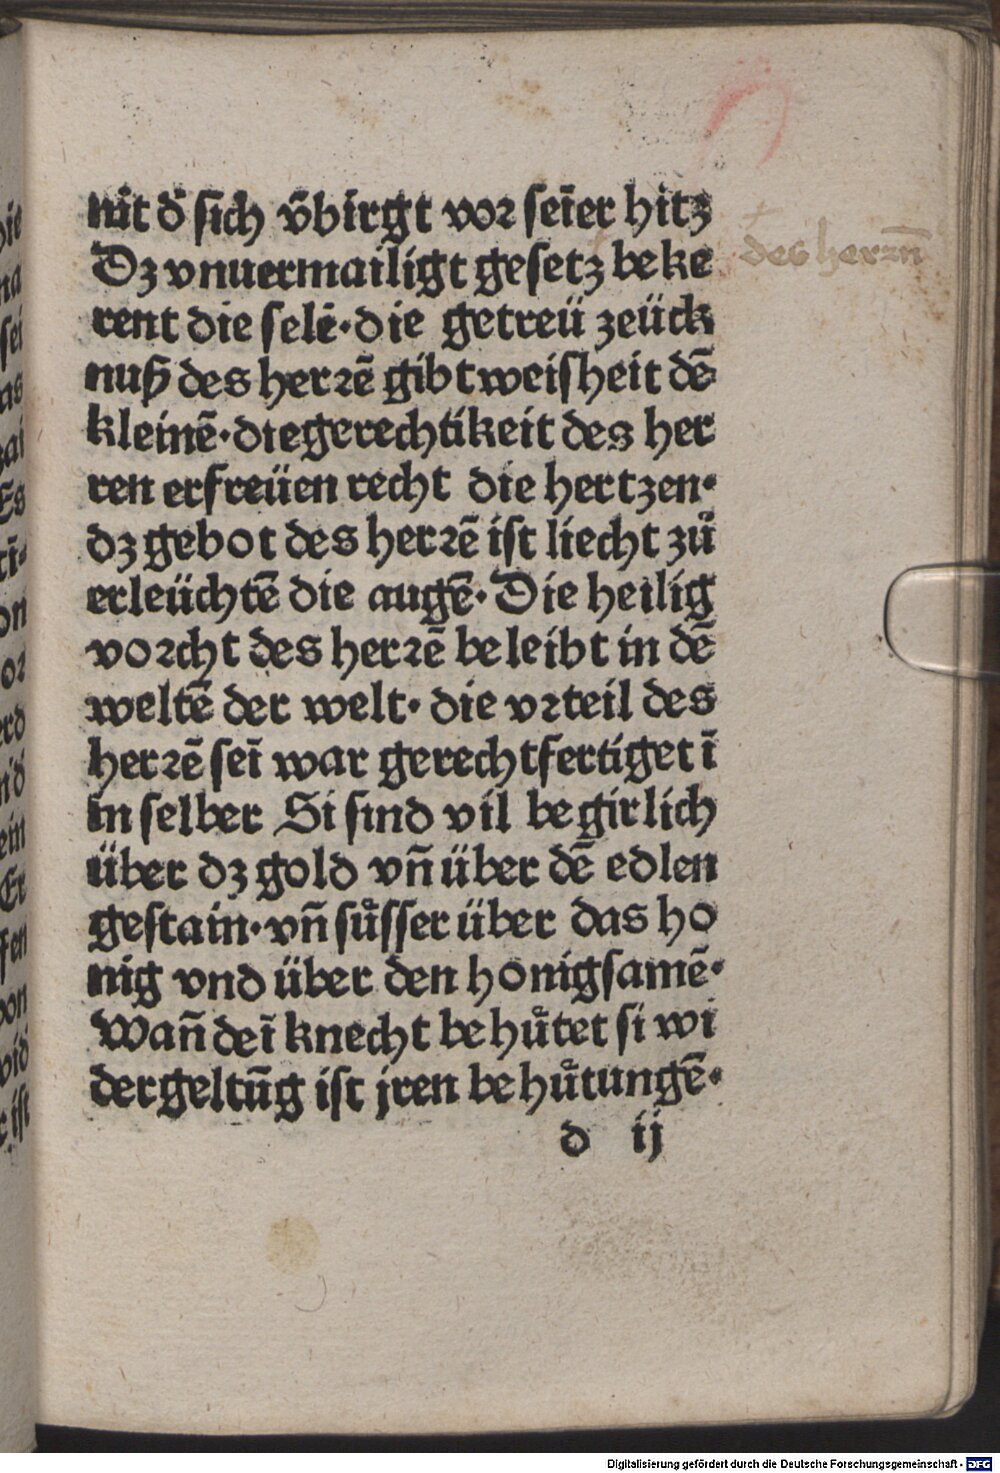 nit d̃ sich ṽbirgt vor seīer hitz
Dz vnuermailigt gesetz beke
des herrn̄
rent die selē·die getreü zeück
nuß des herrē gibt weisheit dē
kleinē·die gerechtikeit des her
ren erfreüen recht die hertzen·
dz gebot des herrē ist liecht zů
erleüchtē die augē·Die heilig
vorcht des herrē beleibt in dē
weltē der welt·die vrteil des
herrē seī war gerechtfertiget ī
in selber Si sind vil begirlich
über dz gold vn̄ über dē edlen
gestain·vn̄ sůsser über das ho
nig vnd über den honigsamē·
Wan̄ deī knecht behůtet si wi
dergeltūg ist jren behůtungē·
d ij
Digitalisierung gefördert durch die Deutsche Forschungsgemeinschaft - DFG